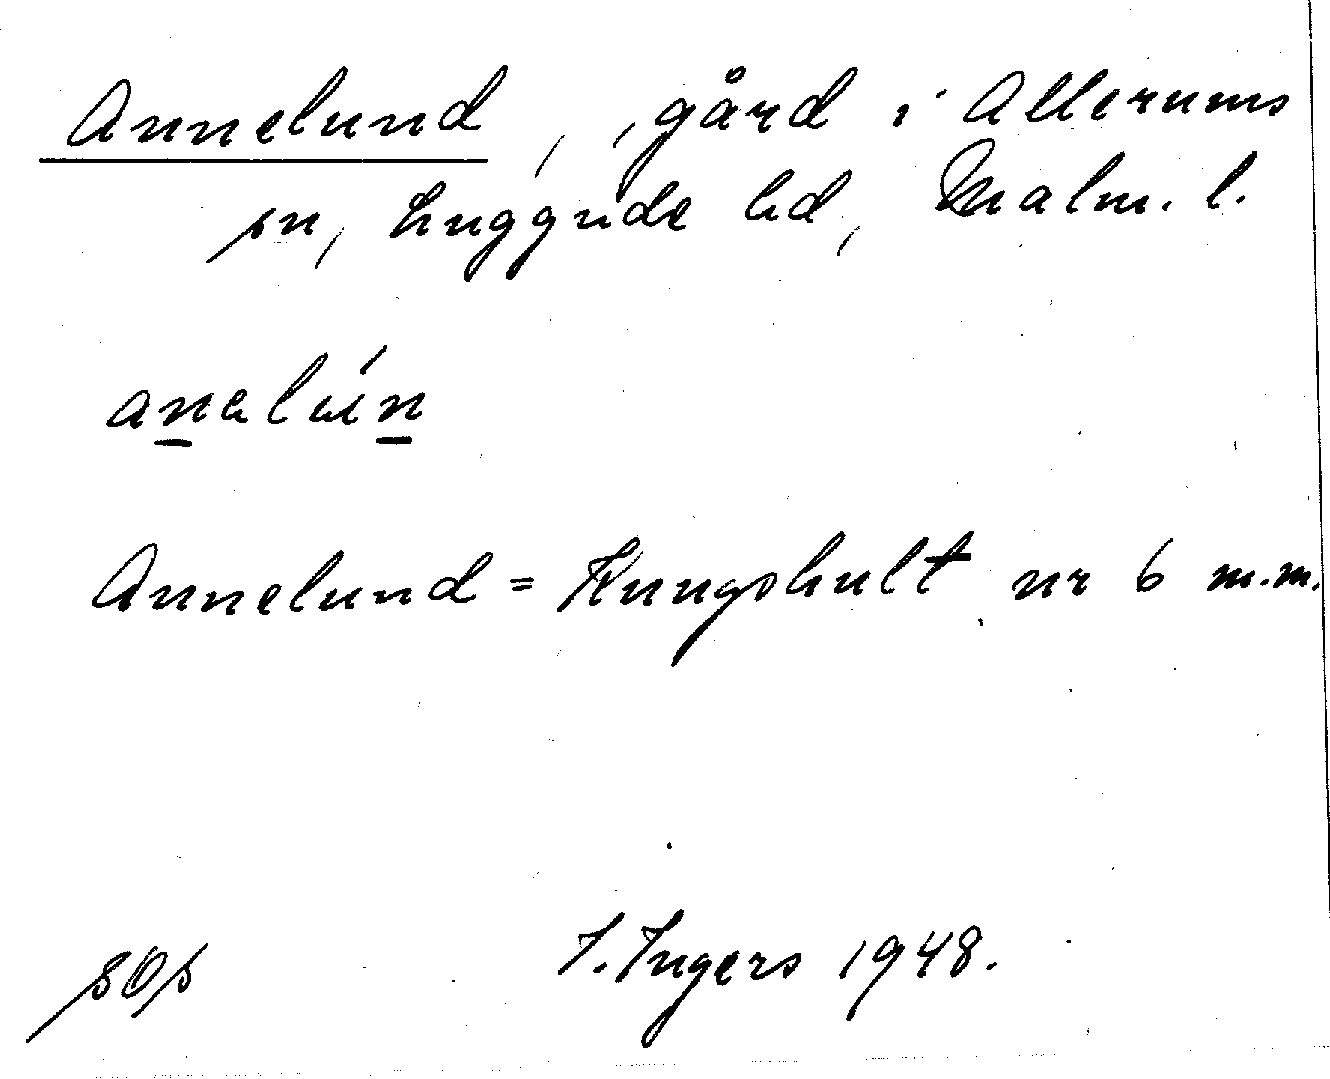 Annelund, , gård i Allerums
sn, Luggude hd, Malm. l.
anelún
Annelund = Kungshult nr 6 m.m.
I. Ingers 1948.